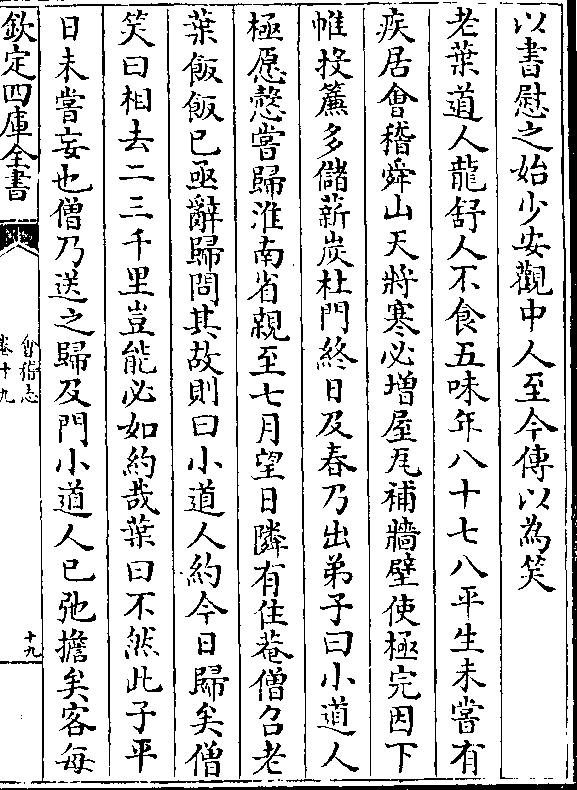 以書慰之始少安觀中人至今傳以為笑
老葉道人龍舒人不食五味年八十七八平生未嘗有
疾居會稽舜山天將寒必增屋瓦補牆壁使極完因下
帷投簾多儲薪炭杜門終日及春乃出弟子曰小道人
極愿慤嘗歸淮南省親至七月望日隣有住菴僧召老
葉飯飯已亟辭歸問其故則曰小道人約今日歸矣僧
笑曰相去二三千里豈能必如約哉葉曰不然此子平
日未嘗妄也僧乃送之歸及門小道人已弛擔矣客每
欽定四庫全書
會稽志
卷十九
十九